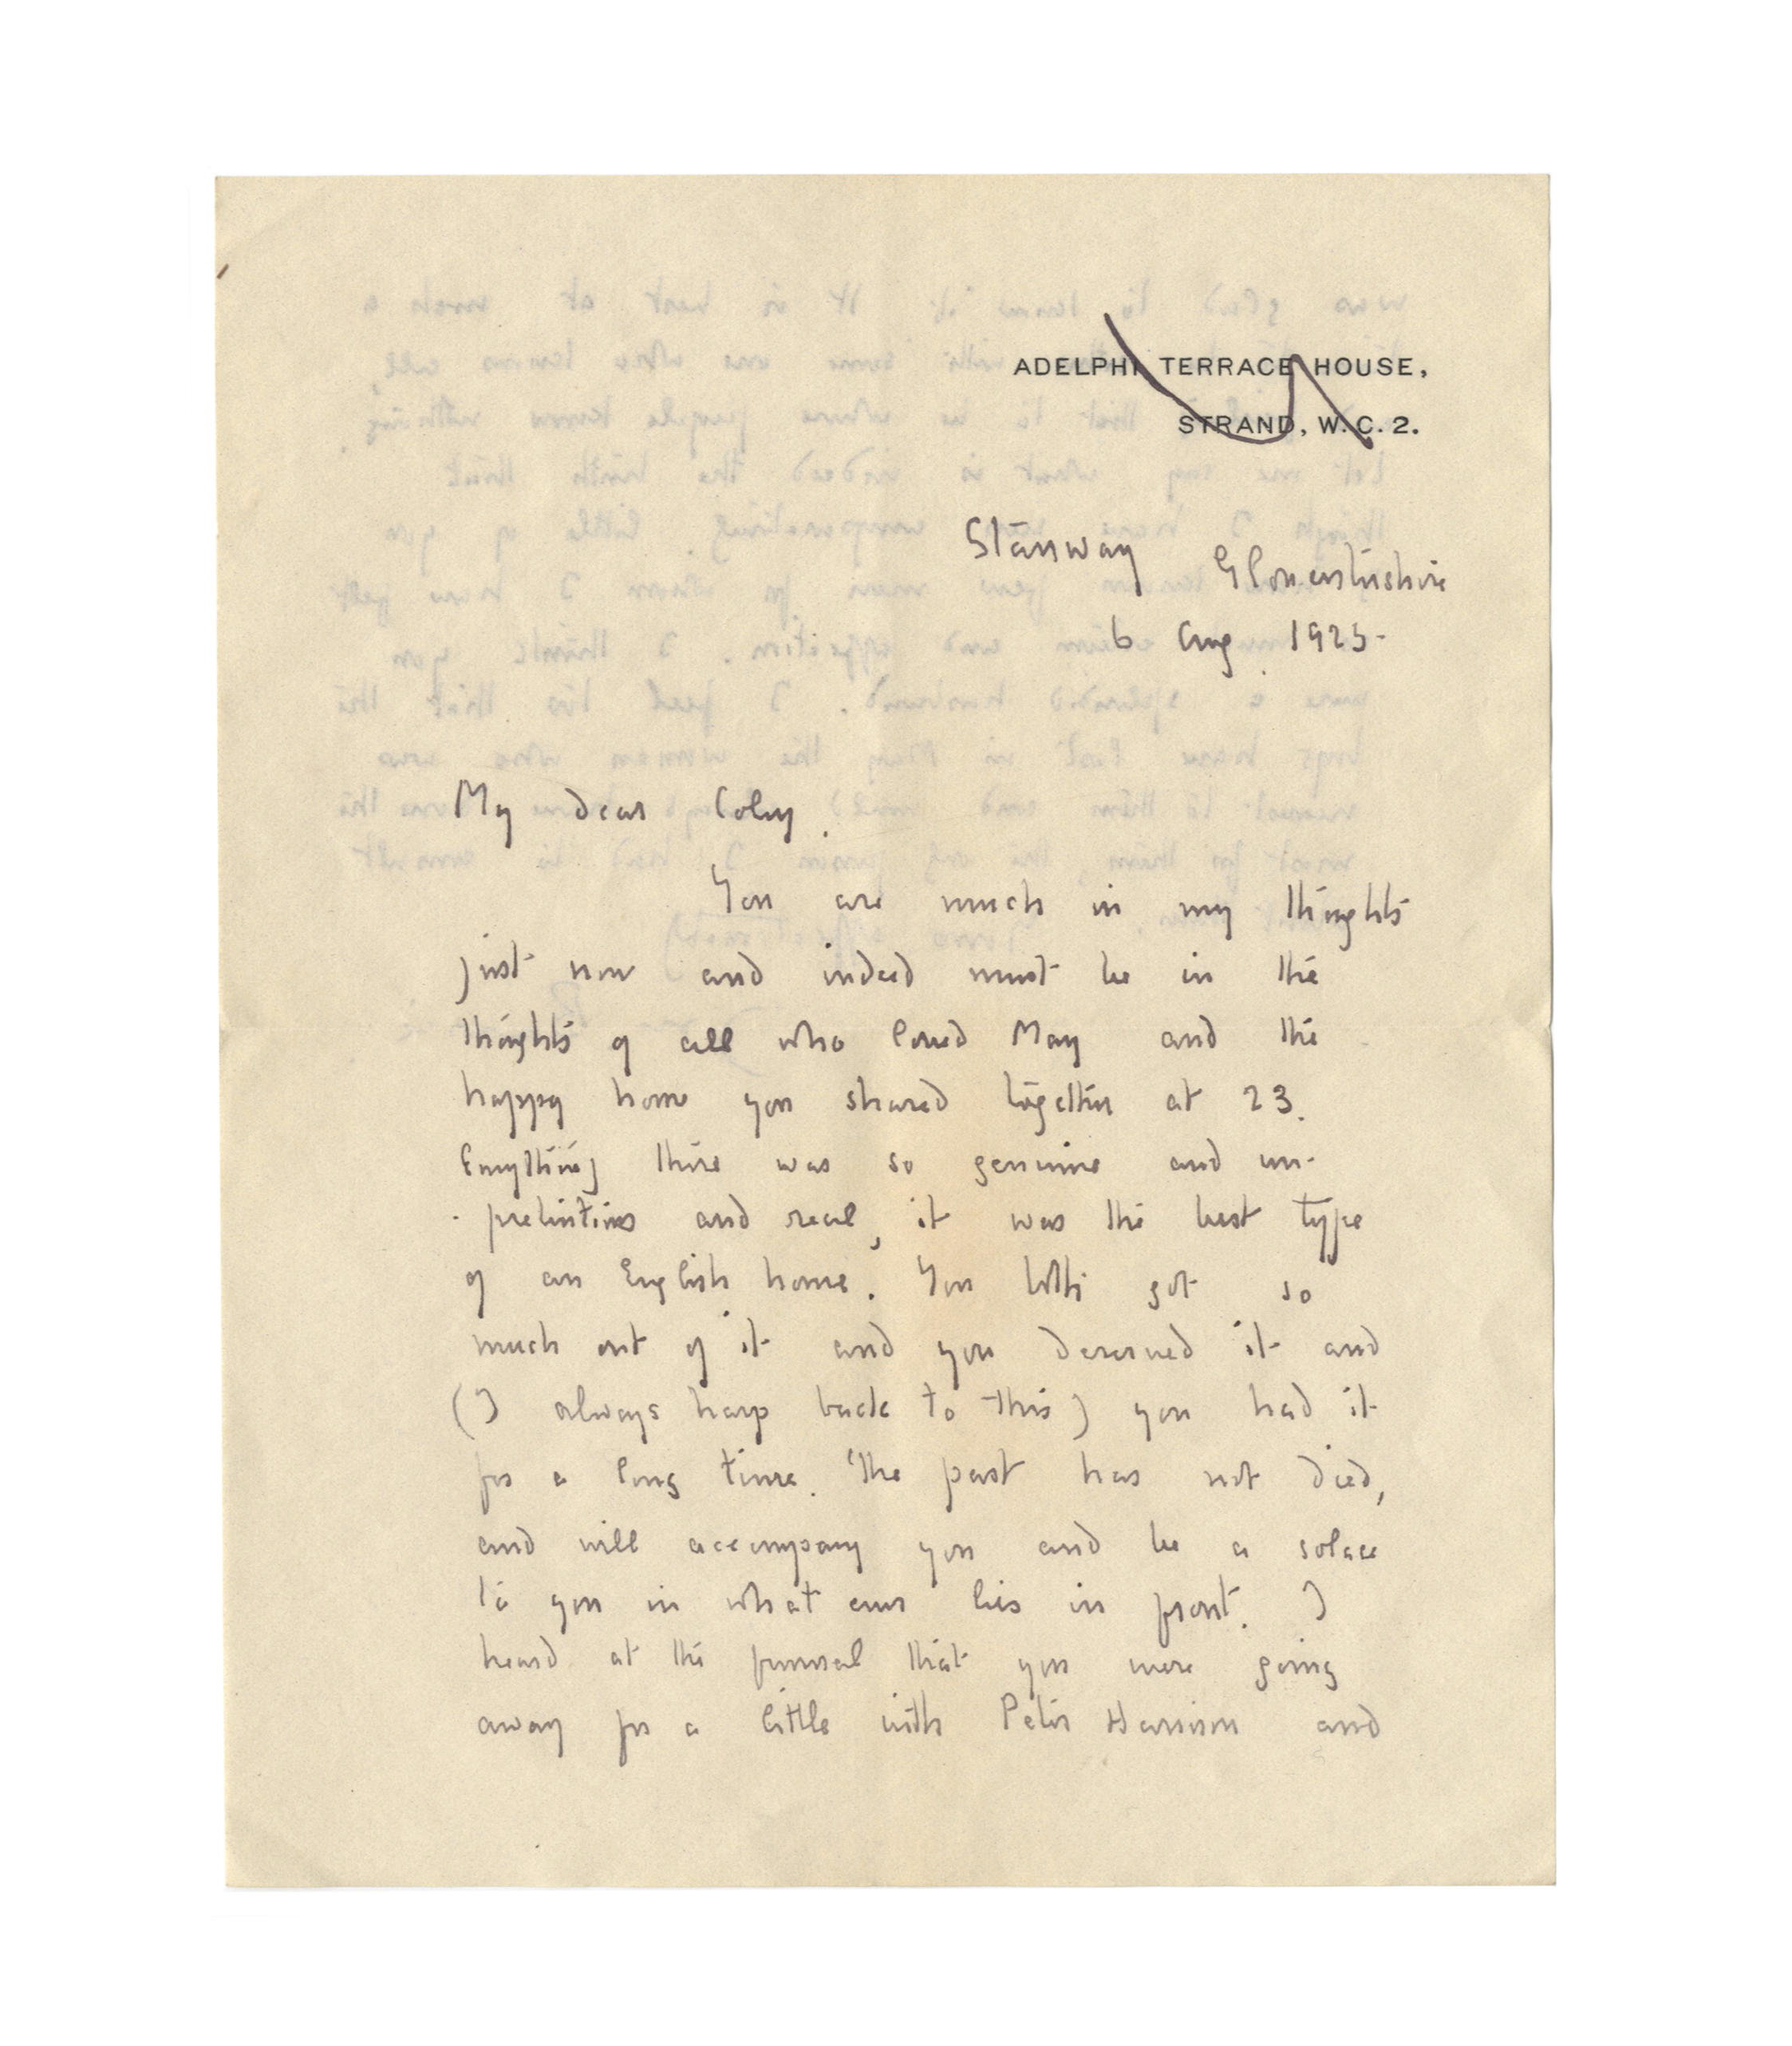 ADELPHI TERRACE HOUSE,
STRAND, W.C.2.
Stanway Gloucestershire
6 Aug. 1925.
My dear Coley.
You are much in my thoughts
just now and indeed must be in the
thoughts of all who loved May and the
happy home you shared together at 23.
Everything there was so genuine and un-
-pretentious and real, it was the best type
of an English home. You both got so
much out of it and you deserved it and
(I always harp back to this) you had it
for a long time. The past has not died,
and will accompany you and be a solace
to you in what ever lies in front. I
heard at the funeral that you were going
away for a little with Peter Harrison and